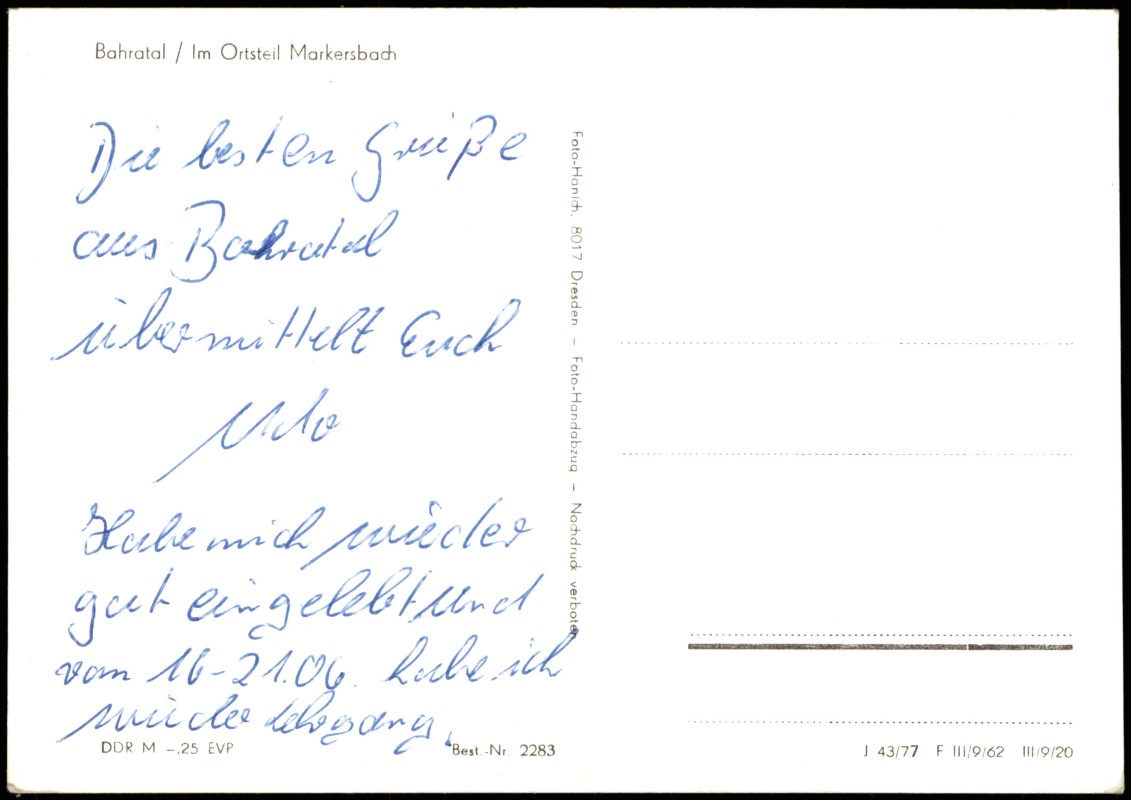 Bahratal / Im Ortsteil Markersbach
Die besten Grüße
aus Bahratal
übermittelt Euch
Udo
Habe mich wieder
gut eingelebt und
vom 16-21.06. habe ich
wieder Lehrgang.
DDR M –.25 EVP
Best.-Nr. 2283
Foto-Hanich, 8017 Dresden – Foto-Handabzug – Nachdruck verboten
J 43/77 F III/9/62 III/9/20